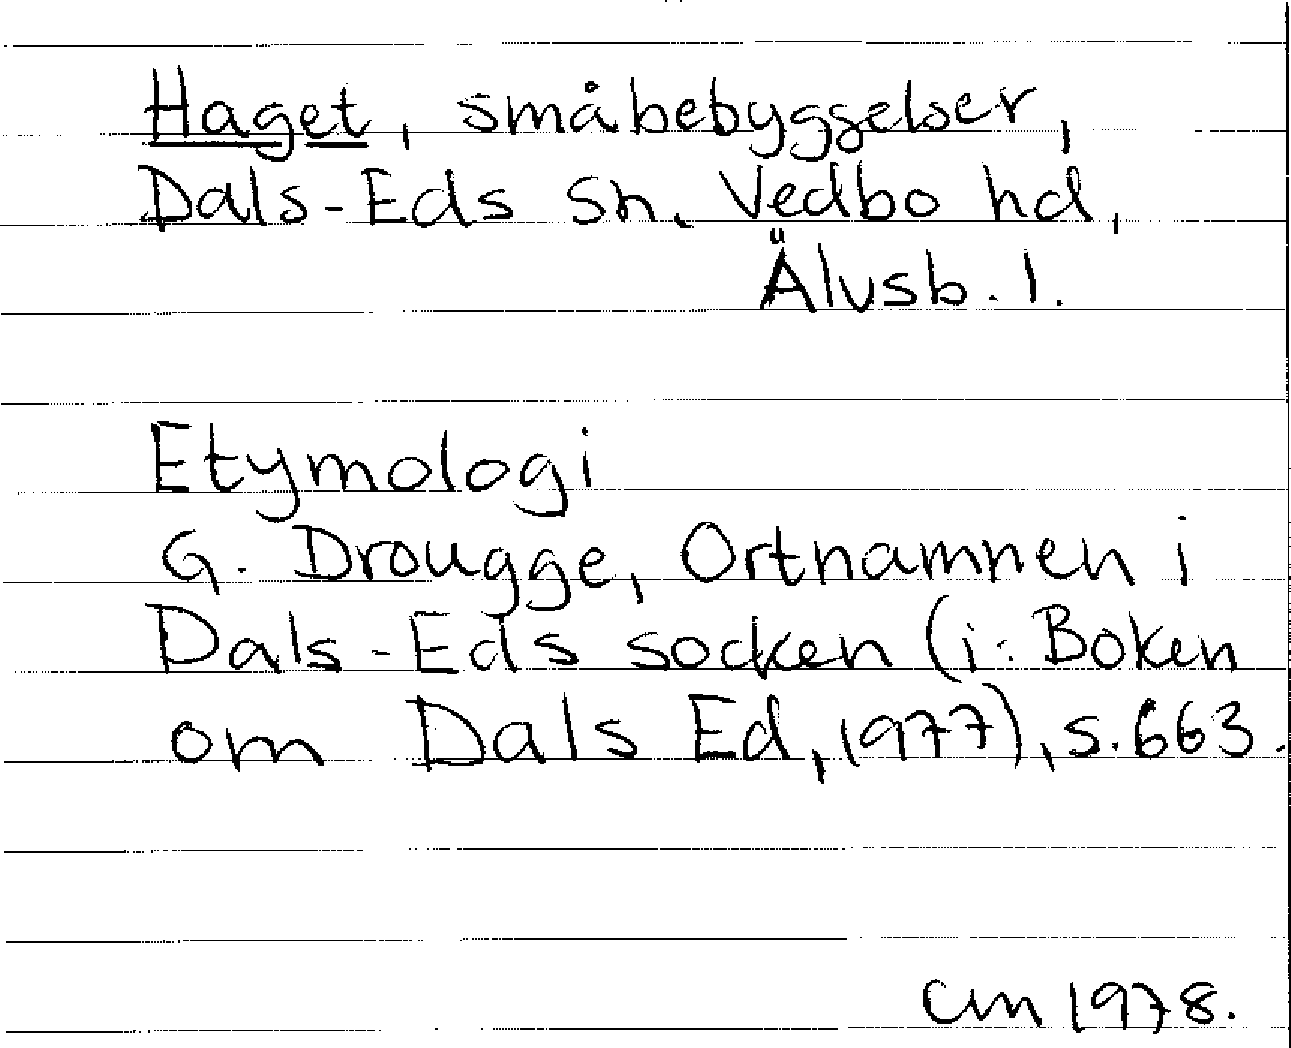 Haget, småbebyggelser,
Dals-Eds sn, Vedbo hd,
Älvsb. l.
Etymologi
G. Drougge, Ortnamnen i
Dals-Eds socken (i: Boken
om Dals Ed, 1977), s. 663.
CM 1978.